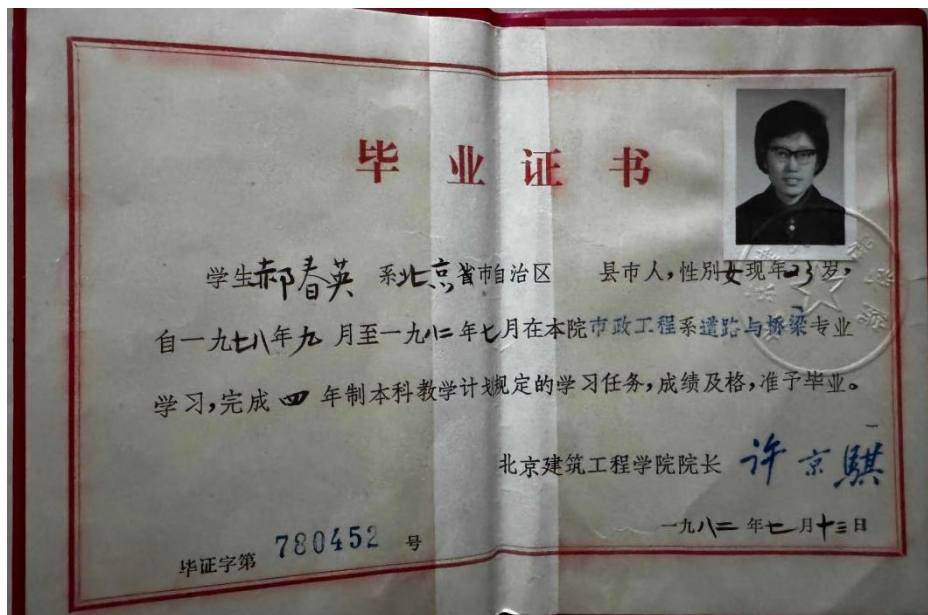 毕业证书
学生郝春英 系北京省市自治区 县市人,性别女现年23岁,
自一九七八年九月至一九八二年七月在本院市政工程系道路与桥梁专业
学习,完成四年制本科教学计划规定的学习任务,成绩及格,准予毕业。
北京建筑工程学院院长 许京骐
一九八二年七月十三日
毕证字第 780452 号